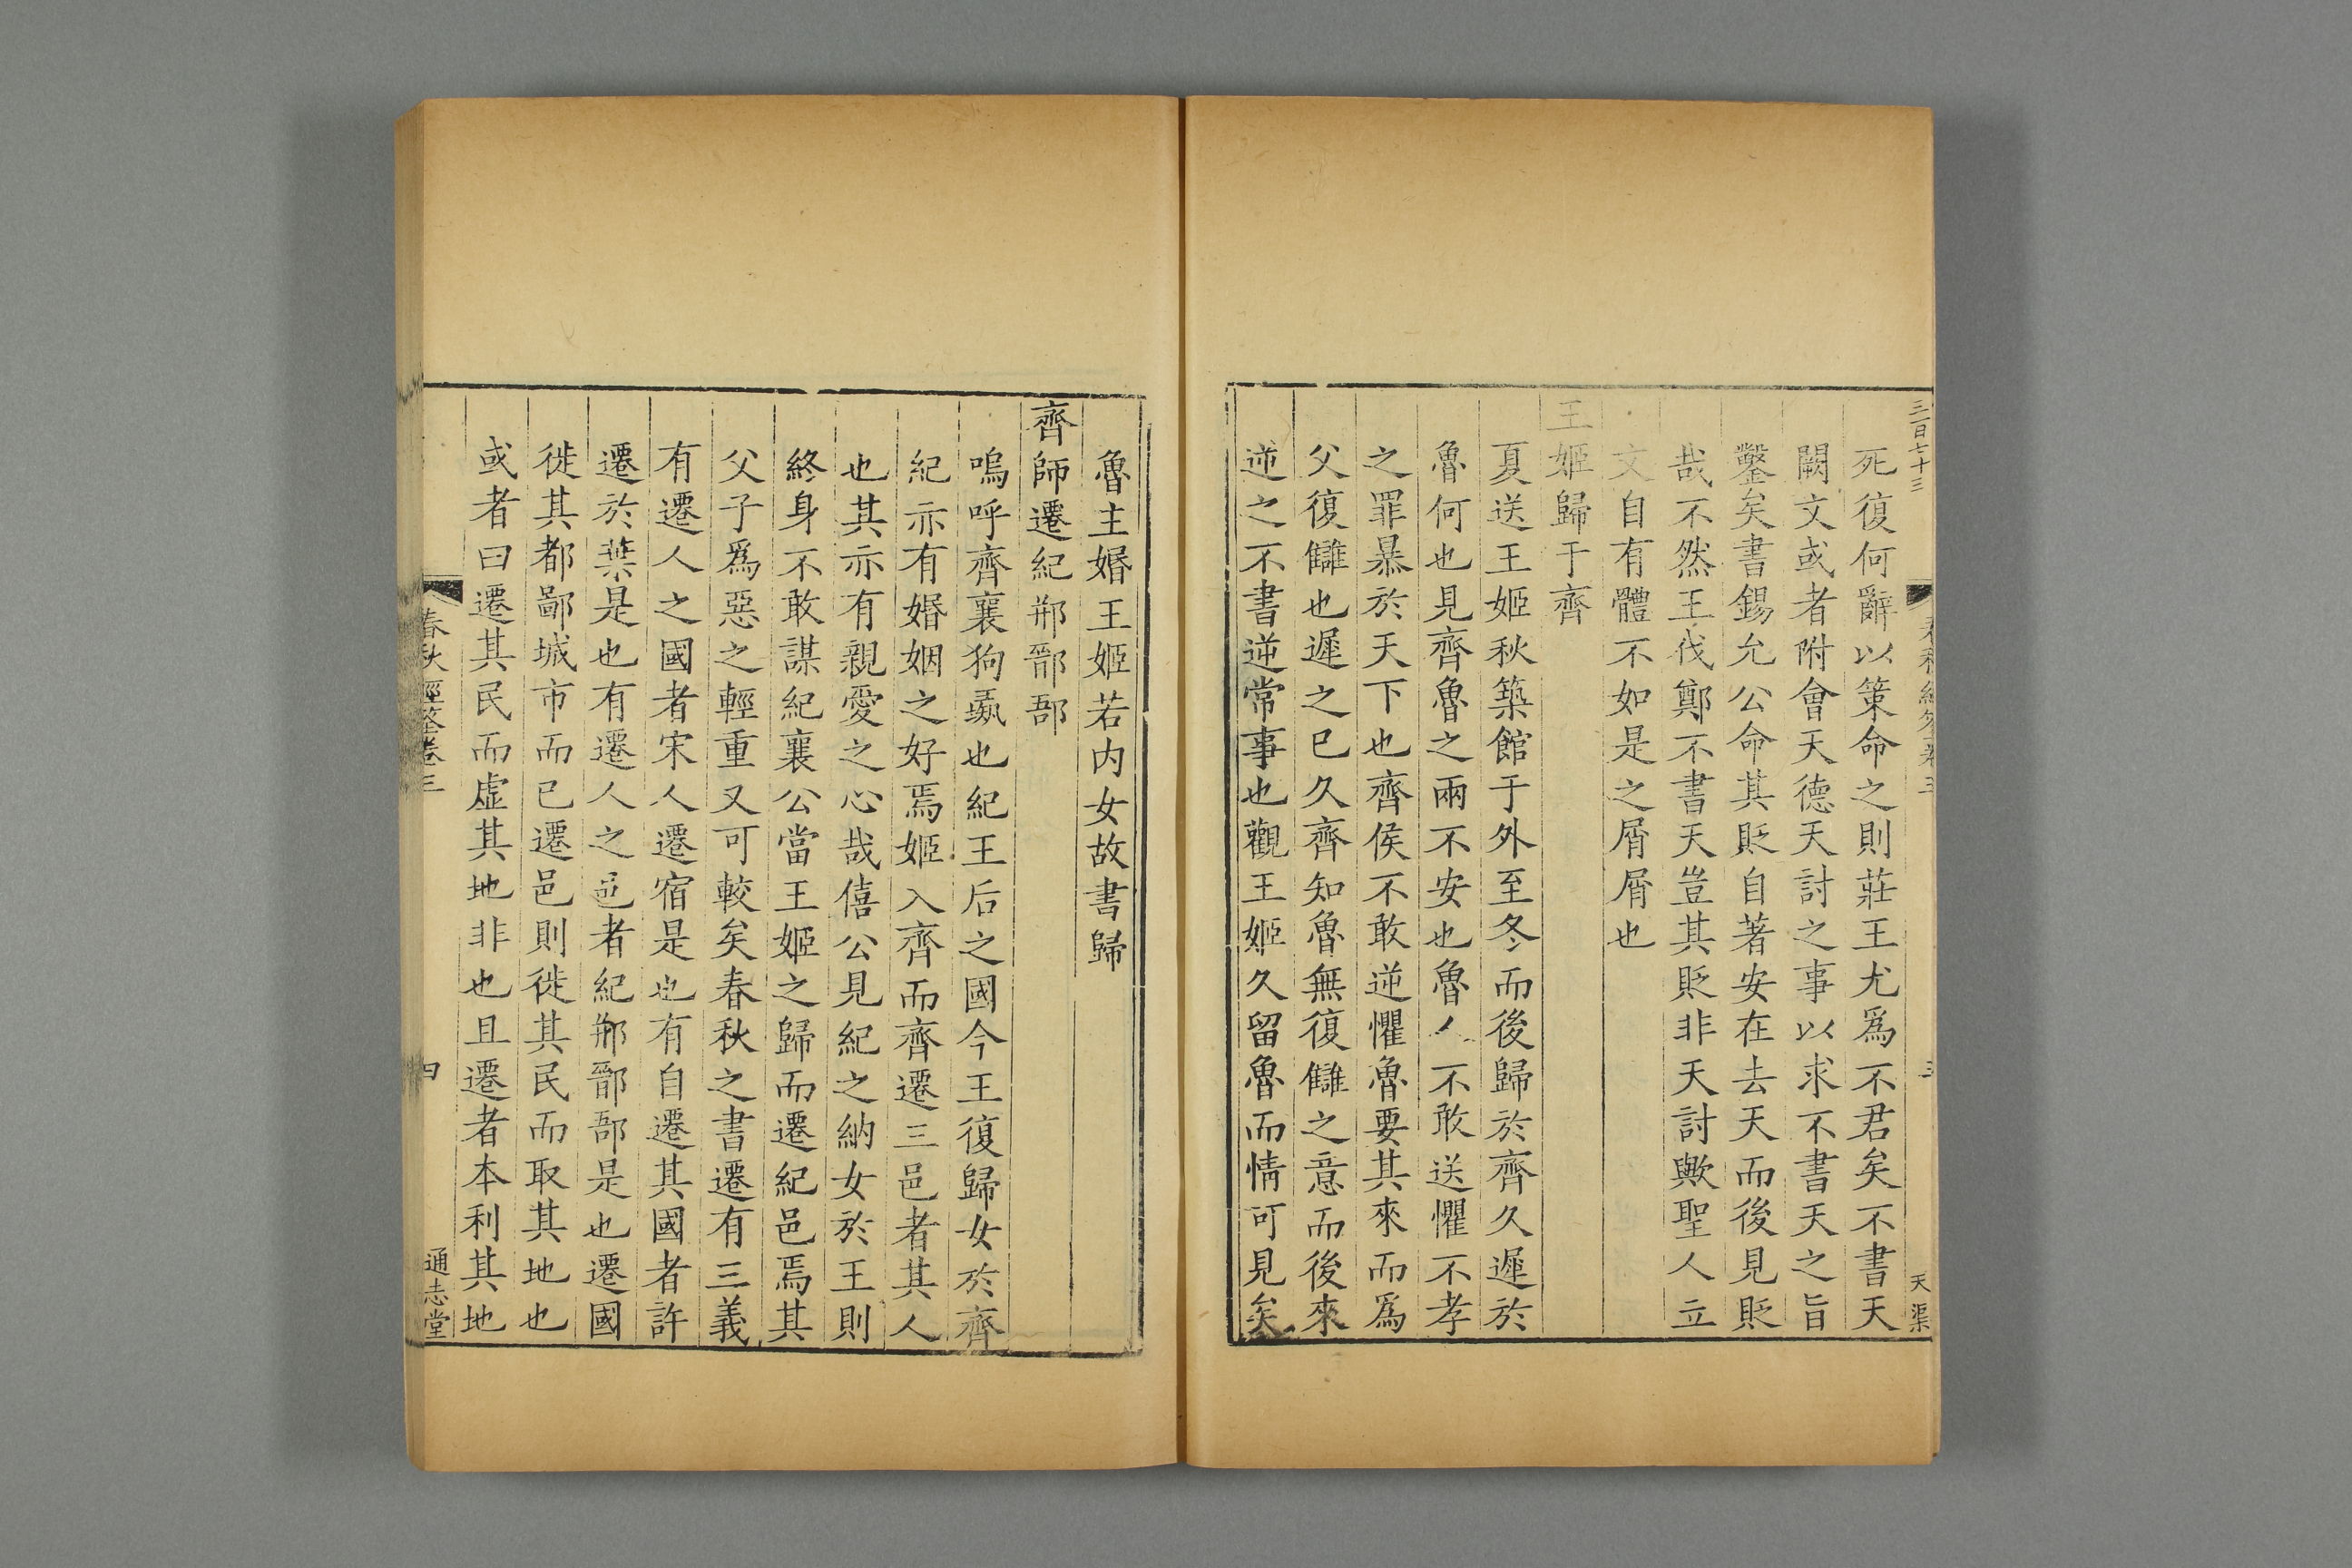 三百七十三
天渠
死復何辭以策命之則莊王尤爲不君矣不書天
闕文或者附會天德天討之事以求不書天之旨
鑿矣書錫允公命其貶自著安在去天而後見貶
哉不然王伐鄭不書天豈其貶非天討歟聖人立
文自有體不如是之屑屑也
王姬歸于齊
夏送王姬秋築館于外至冬而後歸於齊久遲於
魯何也見齊魯之兩不安也魯人不敢送懼不孝
之罪暴於天下也齊侯不敢逆懼魯要其來而爲
父復讎也遲之已久齊知魯無復讎之意而後來
逆之不書逆常事也觀王姬久留魯而情可見矣
魯主婚王姬若内女故書歸
齊師遷紀郱鄑郚
嗚呼齊襄狗彘也紀王后之國今王復歸女於齊
紀亦有婚姻之好焉姬入齊而齊遷三邑者其人
也其亦有親愛之心哉僖公見紀之納女於王則
終身不敢謀紀襄公當王姬之歸而遷紀邑焉其
父子爲惡之輕重又可較矣春秋之書遷有三義
有遷人之國者宋人遷宿是也有自遷其國者許
遷於葉是也有遷人之邑者紀郱鄑郚是也遷國
徙其都鄙城市而已遷邑則徙其民而取其地也
或者曰遷其民而虛其地非也且遷者本利其地
春秋經筌卷三
四
通志堂